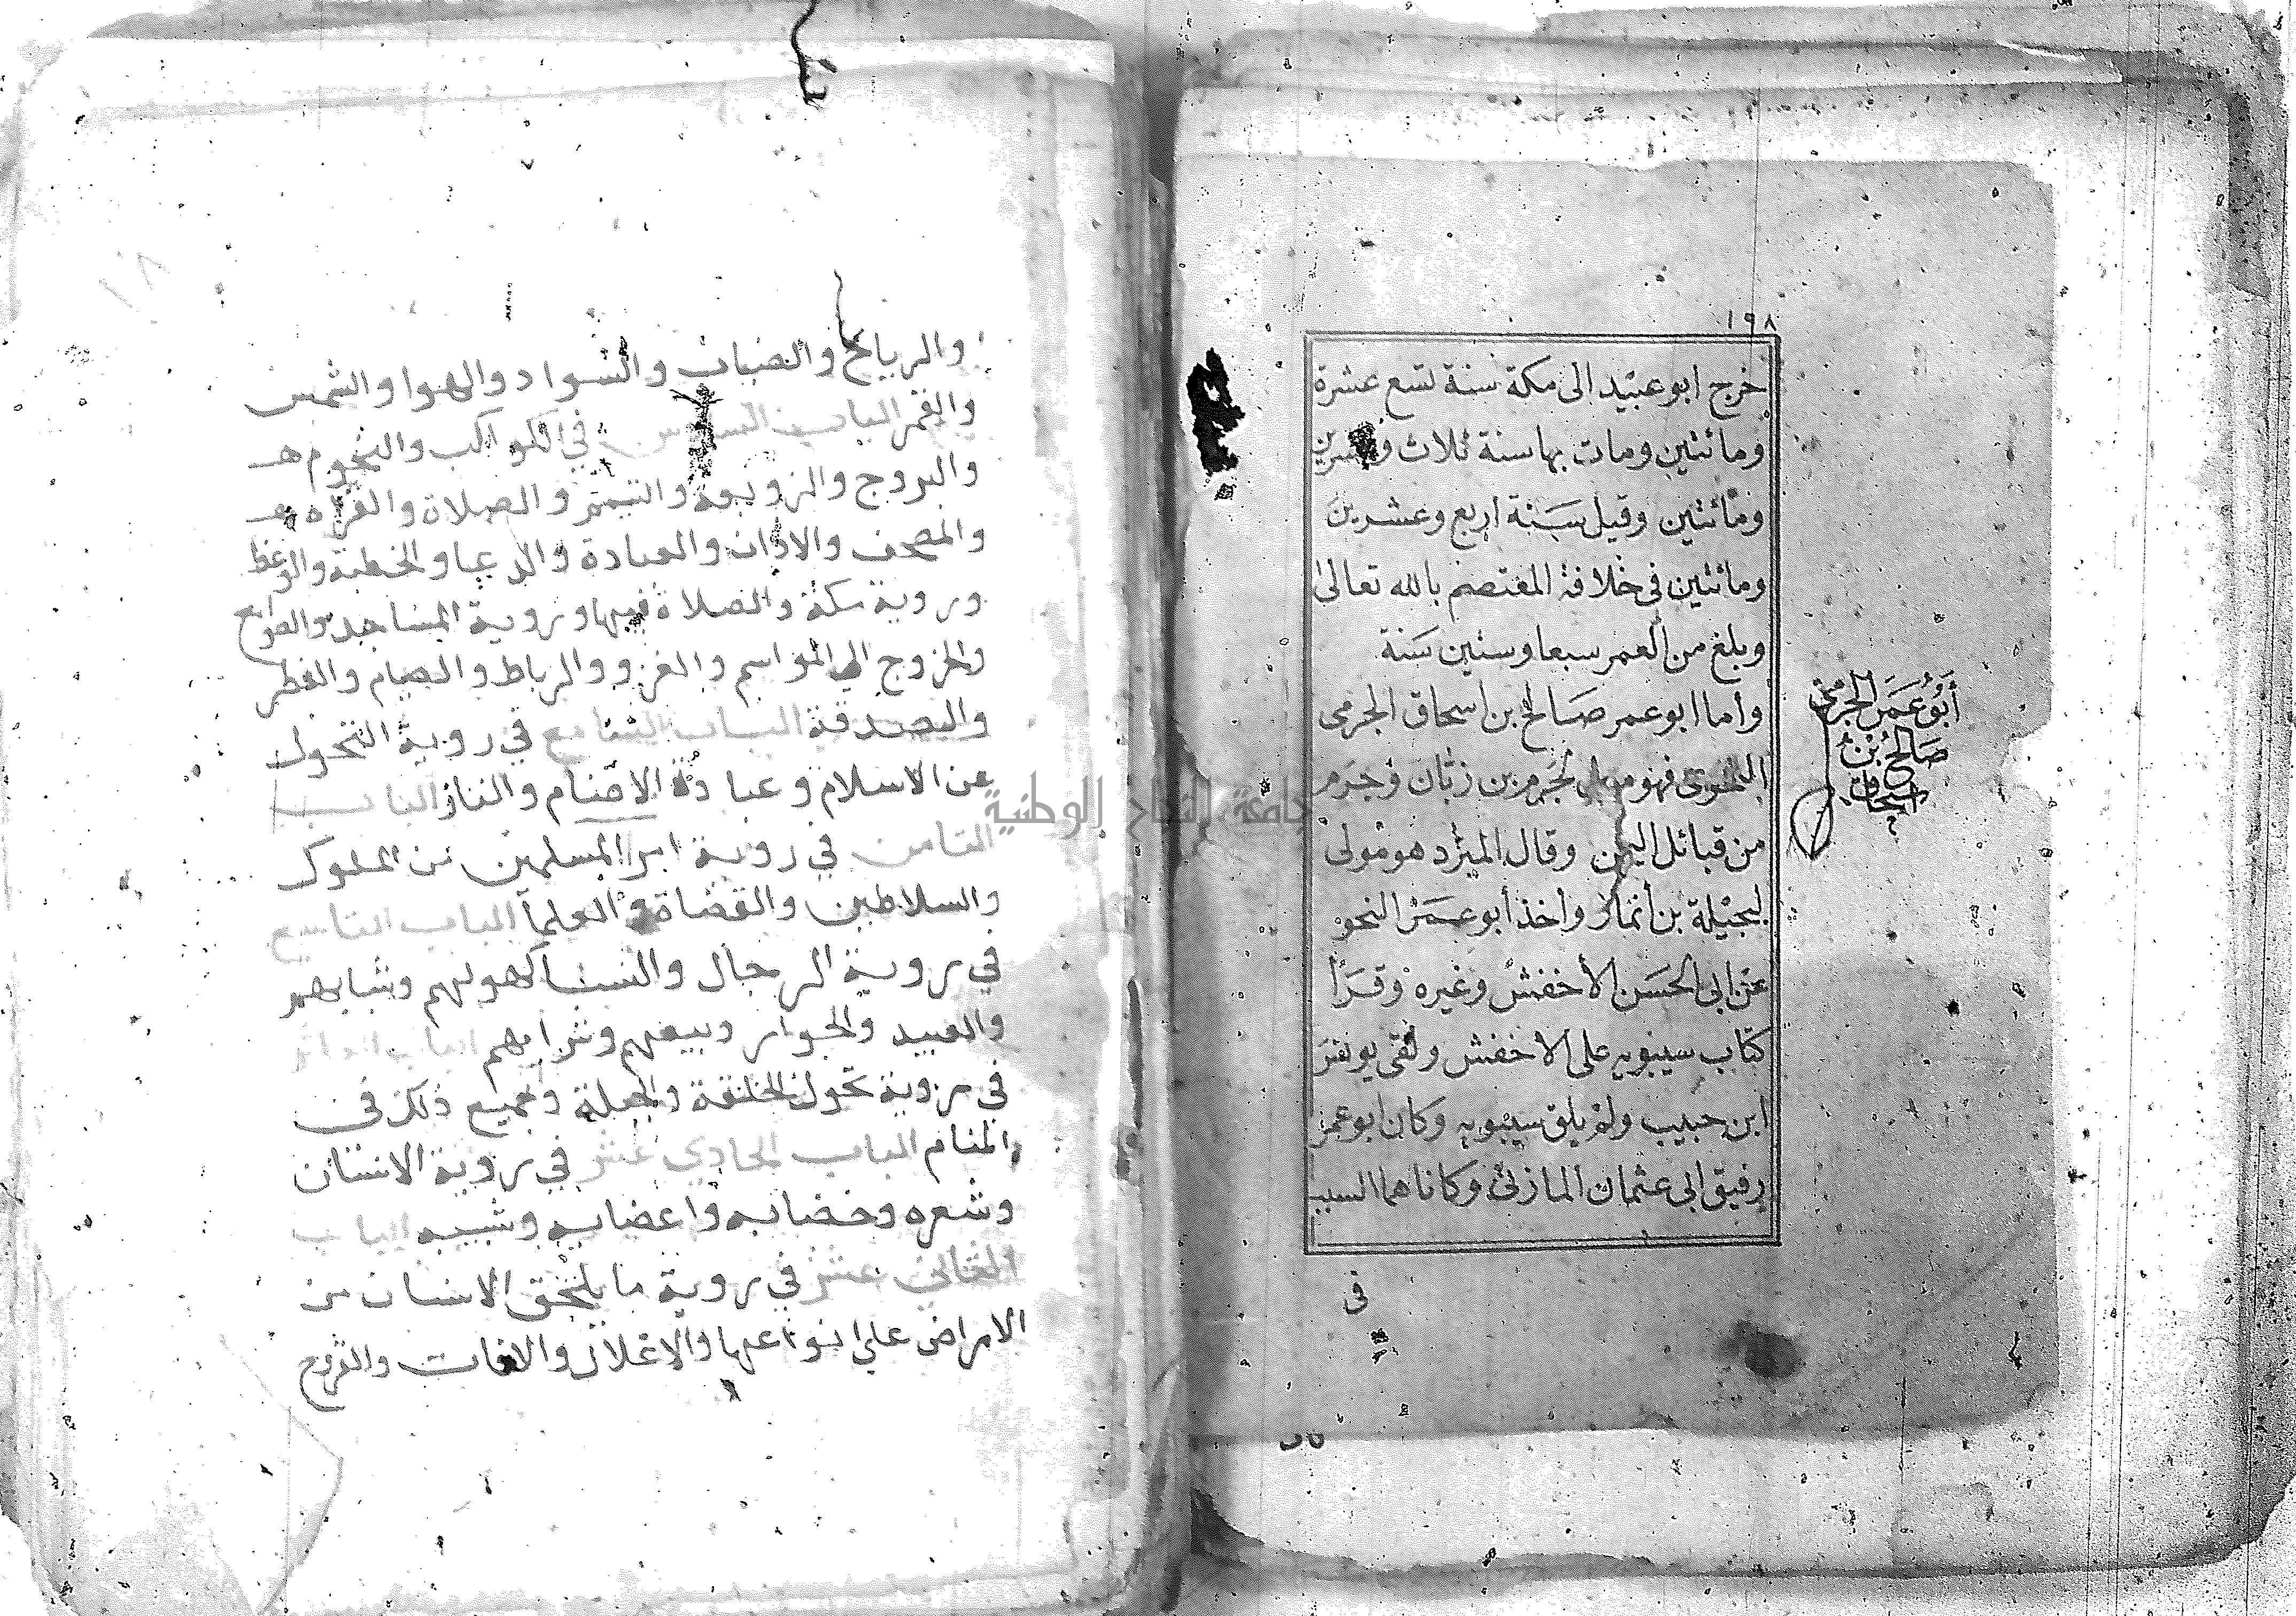 ١٩٨
خرج ابو عبيد الى مكة سنة تسع عشرة
ومائتين ومات بها سنة ثلاث وعشرين
ومائتين وقيل سنة اربع وعشرين
ومائتين في خلافة المعتصم بالله تعالى
وبلغ من العمر سبعا وستين سنة
واما ابو عمر صالح بن اسحاق الجرمى
النحوى فهو مولى لجرم بن زبان وجرم
من قبائل اليمن وقال المبرد هو مولى
لبجيلة بن أنمار وأخذ أبو عمر النحو
عن ابى الحسن الأخفش وغيره وقرا
كتاب سيبويه على الاخفش ولقى يونس
ابن حبيب ولم يلق سيبويه وكان ابو عمر
رفيق ابى عثمان المازنى وكانا هما السبب
فى
أبو عمر الجرمى
صالح بن
اسحاق
جامعة النجاح الوطنية
والرياح والضباب والسواد والهوا والشمس
والقمر الباب السادس في الكواكب والنجوم
والبروج والزوبعة والتيمم والصلاة والقراه
والمصحف والاذان والعبادة والدعا والخطبة والوعظ
وروية مكة والصلاة فيها وروية المساجد والصوامع
والخروج الي المواسم والغزو والرباط والصيام والفطر
والصدقة الباب السابع في روية التحول
عن الاسلام وعبادة الاصنام والنار الباب
الثامن في روية امرا المسلمين من الملوك
والسلاطين والقضاة والعلمآ الباب التاسع
في روية الرجال والنسا كهولهم وشبابهم
والعبيد والجوار وبيعهم وشرايهم الباب العاشر
في روية تحول الخلقة والجملة وجميع ذلك في
المنام الباب الحادي عشر في روية الانسان
وشعره وخضابه واعضايه وشيبه الباب
الثاني عشر في روية ما يلحق الانسان من
الامراض علي انواعها والاعلال والافات والقروح